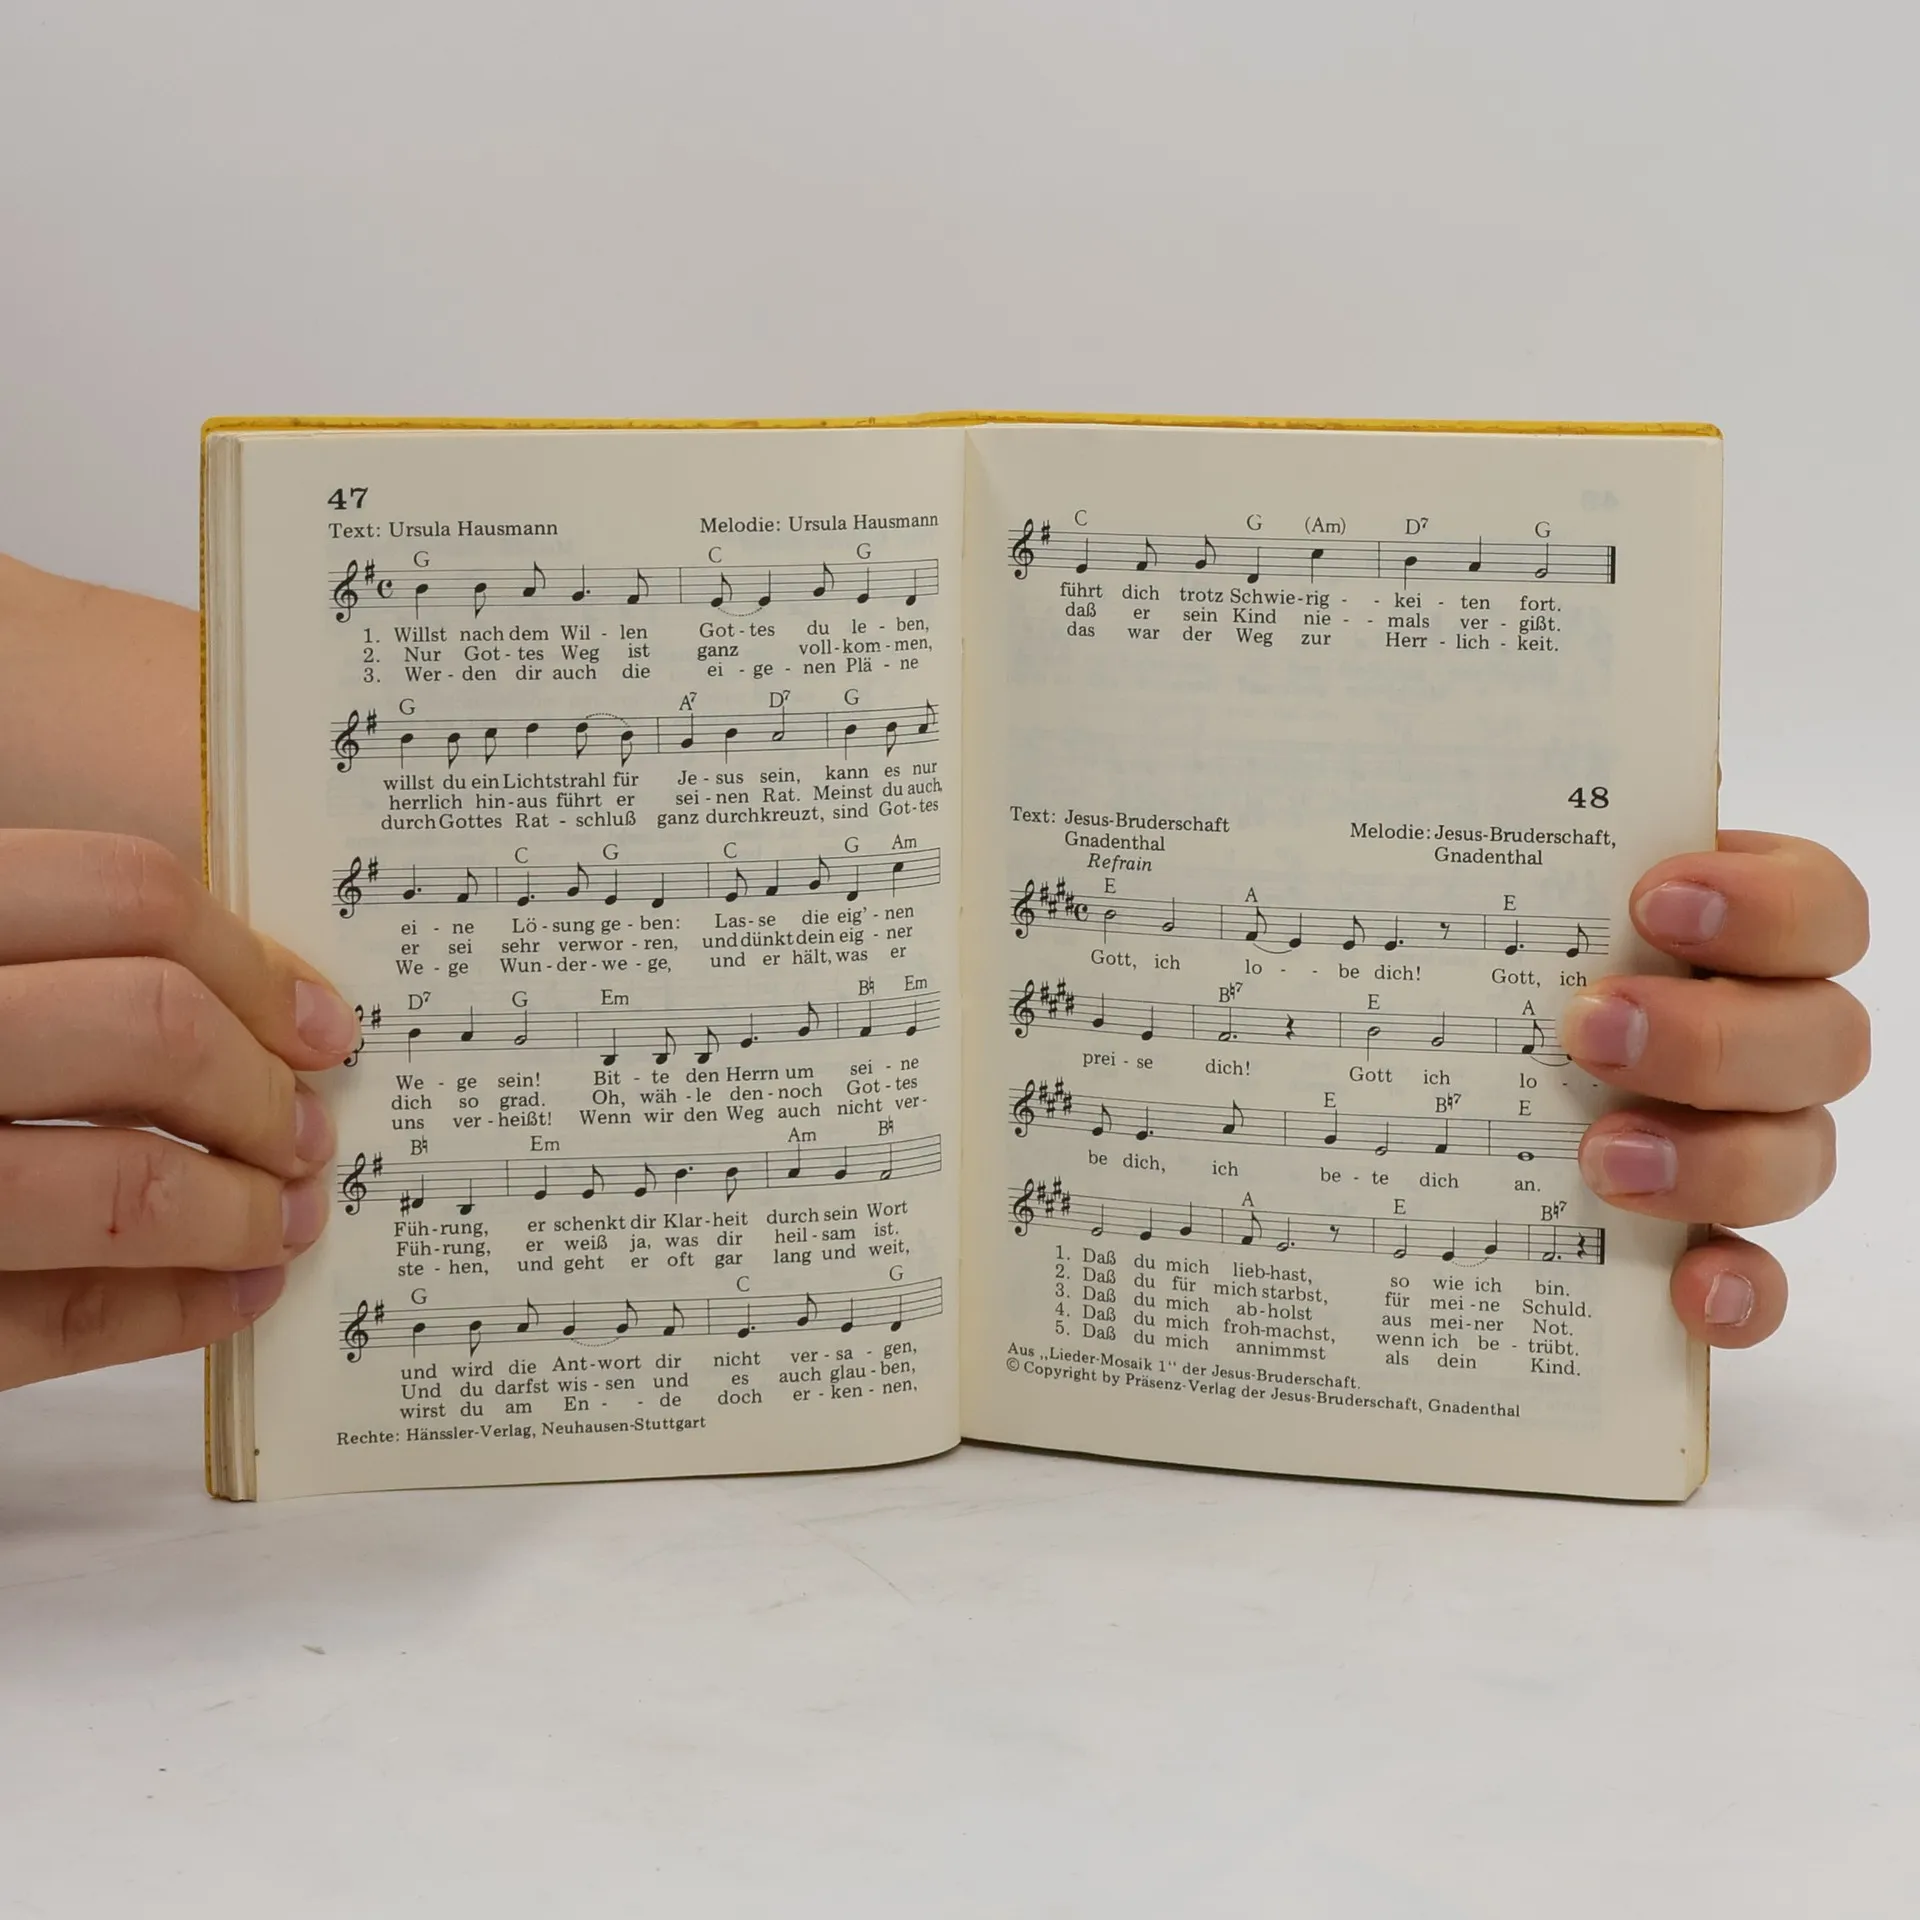 47
Text: Ursula Hausmann Melodie: Ursula Hausmann
G C G
1. Willst nach dem Wil - len Got - tes du le - ben,
2. Nur Got - tes Weg ist ganz voll - kom - men,
3. Wer - den dir auch die ei - ge - nen Plä - ne
G A7 D7 G
willst du ein Lichtstrahl für Je - sus sein, kann es nur
herrlich hin - aus führt er sei - nen Rat. Meinst du auch,
durch Gottes Rat - schluß ganz durchkreuzt, sind Got - tes
C G C G Am
ei - ne Lö - sung ge - ben: Las - se die eig' - nen
er sei sehr verwor - ren, und dünkt dein eig - ner
We - ge Wun - der - we - ge, und er hält, was er
D7 G Em B♮ Em
We - ge sein! Bit - te den Herrn um sei - ne
dich so grad. Oh, wäh - le den - noch Got - tes
uns ver - heißt! Wenn wir den Weg auch nicht ver -
B♮ Em Am B♮
Füh - rung, er schenkt dir Klar - heit durch sein Wort
Füh - rung, er weiß ja, was dir heil - sam ist.
ste - hen, und geht er oft gar lang und weit,
G C G
und wird die Ant - wort dir nicht ver - sa - gen,
Und du darfst wis - sen und es auch glau - ben,
wirst du am En - - de doch er - ken - nen,
Rechte: Hänssler-Verlag, Neuhausen-Stuttgart
C G (Am) D7 G
führt dich trotz Schwie - rig - - kei - ten fort.
daß er sein Kind nie - - mals ver - gißt.
das war der Weg zur Herr - lich - keit.
48
Text: Jesus-Bruderschaft Melodie: Jesus-Bruderschaft,
Gnadenthal Gnadenthal
Refrain
E A E
Gott, ich lo - - be dich! Gott, ich
B♮7 E A
prei - se dich! Gott ich lo - -
E B♮7 E
be dich, ich be - te dich an.
A E B♮7
1. Daß du mich lieb-hast, so wie ich bin.
2. Daß du für mich starbst, für mei - ne Schuld.
3. Daß du mich ab-holst aus mei - ner Not.
4. Daß du mich froh-machst, wenn ich be - trübt.
5. Daß du mich annimmst als dein Kind.
Aus „Lieder-Mosaik 1“ der Jesus-Bruderschaft.
© Copyright by Präsenz-Verlag der Jesus-Bruderschaft, Gnadenthal